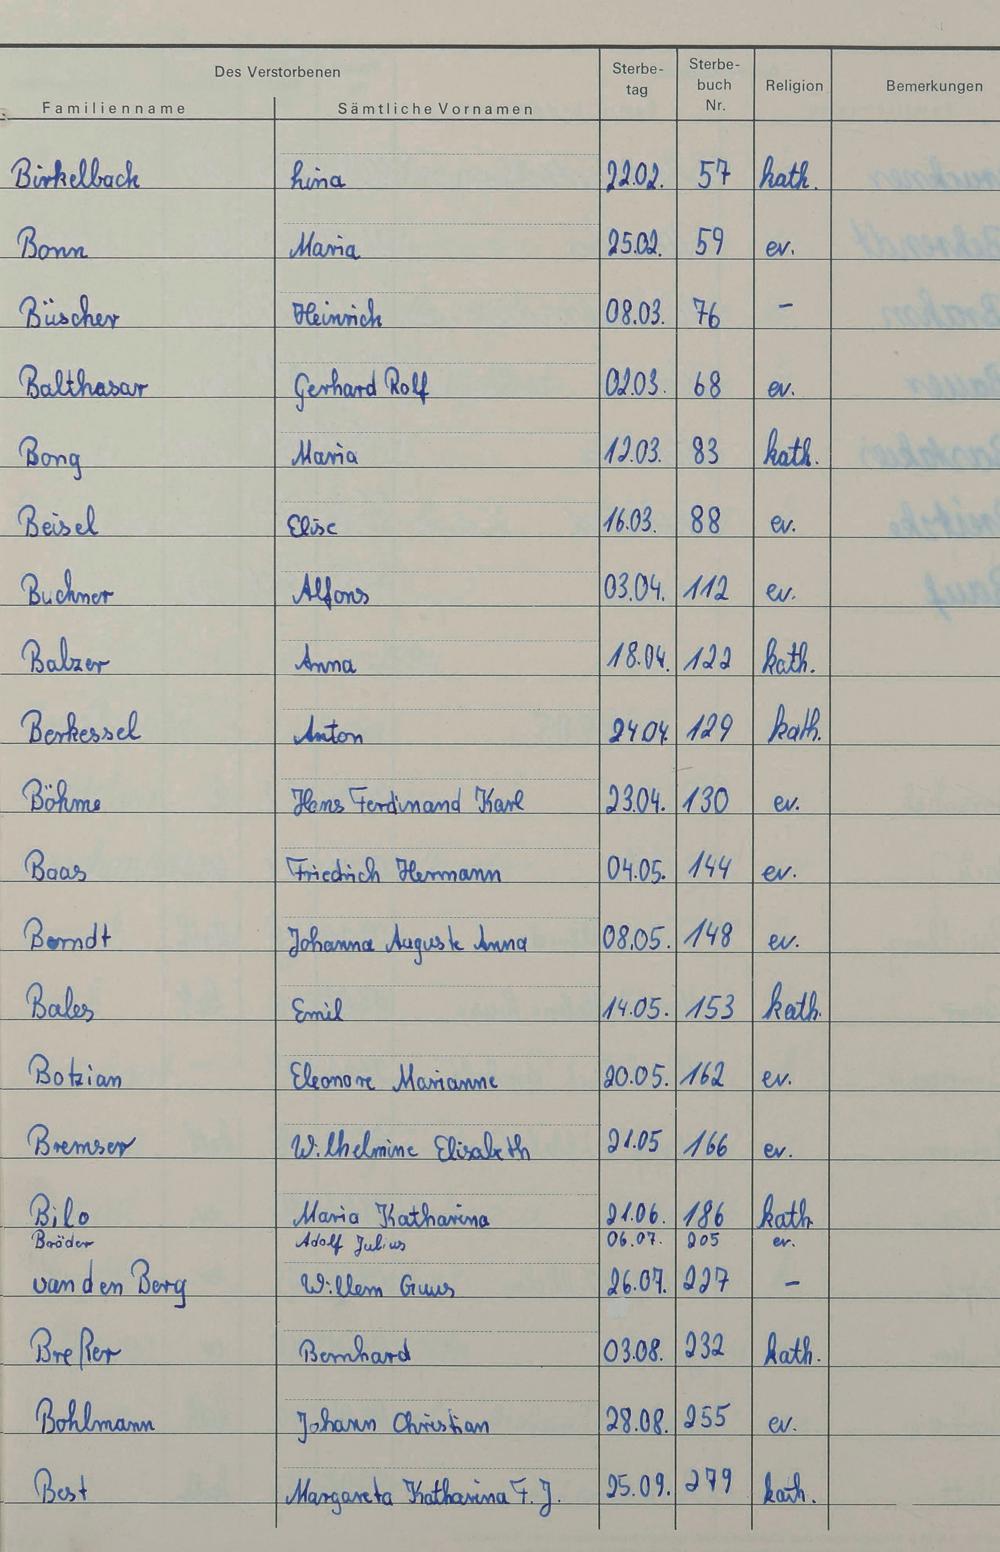 Des Verstorbenen
Familienname Sämtliche Vornamen Sterbe-tag Sterbe-buch Nr. Religion Bemerkungen
Birkelbach Lina 22.02. 57 kath.
Bonn Maria 25.02. 59 ev.
Büscher Heinrich 08.03. 76 –
Balthasar Gerhard Rolf 02.03. 68 ev.
Bong Maria 12.03. 83 kath.
Beisel Elise 16.03. 88 ev.
Buchner Alfons 03.04. 112 ev.
Balzer Anna 18.04. 122 kath.
Berkessel Anton 24.04. 129 kath.
Böhme Hans Ferdinand Karl 23.04. 130 ev.
Baas Friedrich Hermann 04.05. 144 ev.
Berndt Johanna Auguste Anna 08.05. 148 ev.
Bales Emil 14.05. 153 kath.
Botzian Eleonore Marianne 20.05. 162 ev.
Bremser Wilhelmine Elisabeth 21.05 166 ev.
Bilo Maria Katharina 21.06. 186 kath
Bröder Adolf Julius 06.07. 205 ev.
van den Berg Willem Guus 26.07. 227 –
Breßer Bernhard 03.08. 232 kath.
Bohlmann Johann Christian 28.08. 255 ev.
Best Margareta Katharina F. J. 25.09. 279 kath.